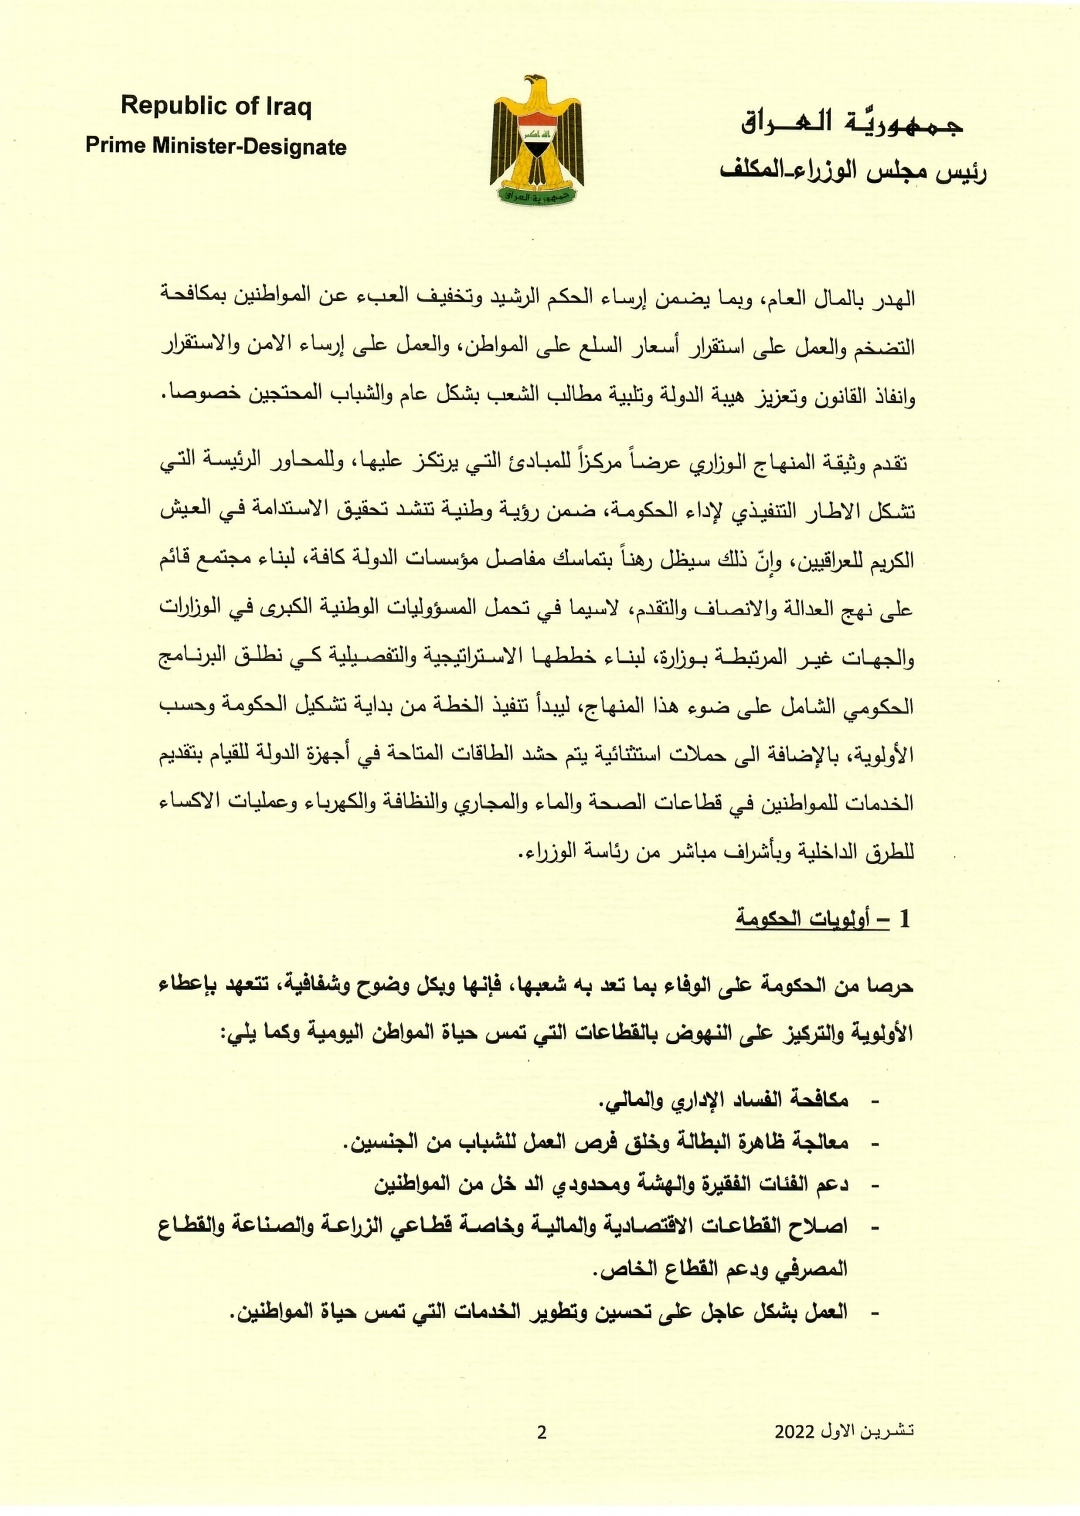 Republic of Iraq
Prime Minister-Designate
الله اكبر
جمهورية العراق
جمهوريَّة العراق
رئيس مجلس الوزراء-المكلف
الهدر بالمال العام، وبما يضمن إرساء الحكم الرشيد وتخفيف العبء عن المواطنين بمكافحة
التضخم والعمل على استقرار أسعار السلع على المواطن، والعمل على إرساء الامن والاستقرار
وانفاذ القانون وتعزيز هيبة الدولة وتلبية مطالب الشعب بشكل عام والشباب المحتجين خصوصا.
تقدم وثيقة المنهاج الوزاري عرضاً مركزاً للمبادئ التي يرتكز عليها، وللمحاور الرئيسة التي
تشكل الاطار التنفيذي لإداء الحكومة، ضمن رؤية وطنية تنشد تحقيق الاستدامة في العيش
الكريم للعراقيين، وإنّ ذلك سيظل رهناً بتماسك مفاصل مؤسسات الدولة كافة، لبناء مجتمع قائم
على نهج العدالة والانصاف والتقدم، لاسيما في تحمل المسؤوليات الوطنية الكبرى في الوزارات
والجهات غير المرتبطة بوزارة، لبناء خططها الاستراتيجية والتفصيلية كي نطلق البرنامج
الحكومي الشامل على ضوء هذا المنهاج، ليبدأ تنفيذ الخطة من بداية تشكيل الحكومة وحسب
الأولوية، بالإضافة الى حملات استثنائية يتم حشد الطاقات المتاحة في أجهزة الدولة للقيام بتقديم
الخدمات للمواطنين في قطاعات الصحة والماء والمجاري والنظافة والكهرباء وعمليات الاكساء
للطرق الداخلية وبأشراف مباشر من رئاسة الوزراء.
1 – أولويات الحكومة
حرصا من الحكومة على الوفاء بما تعد به شعبها، فإنها وبكل وضوح وشفافية، تتعهد بإعطاء
الأولوية والتركيز على النهوض بالقطاعات التي تمس حياة المواطن اليومية وكما يلي:
- مكافحة الفساد الإداري والمالي.
- معالجة ظاهرة البطالة وخلق فرص العمل للشباب من الجنسين.
- دعم الفئات الفقيرة والهشة ومحدودي الد خل من المواطنين
- اصلاح القطاعات الاقتصادية والمالية وخاصة قطاعي الزراعة والصناعة والقطاع
المصرفي ودعم القطاع الخاص.
- العمل بشكل عاجل على تحسين وتطوير الخدمات التي تمس حياة المواطنين.
تشرين الاول 2022
2